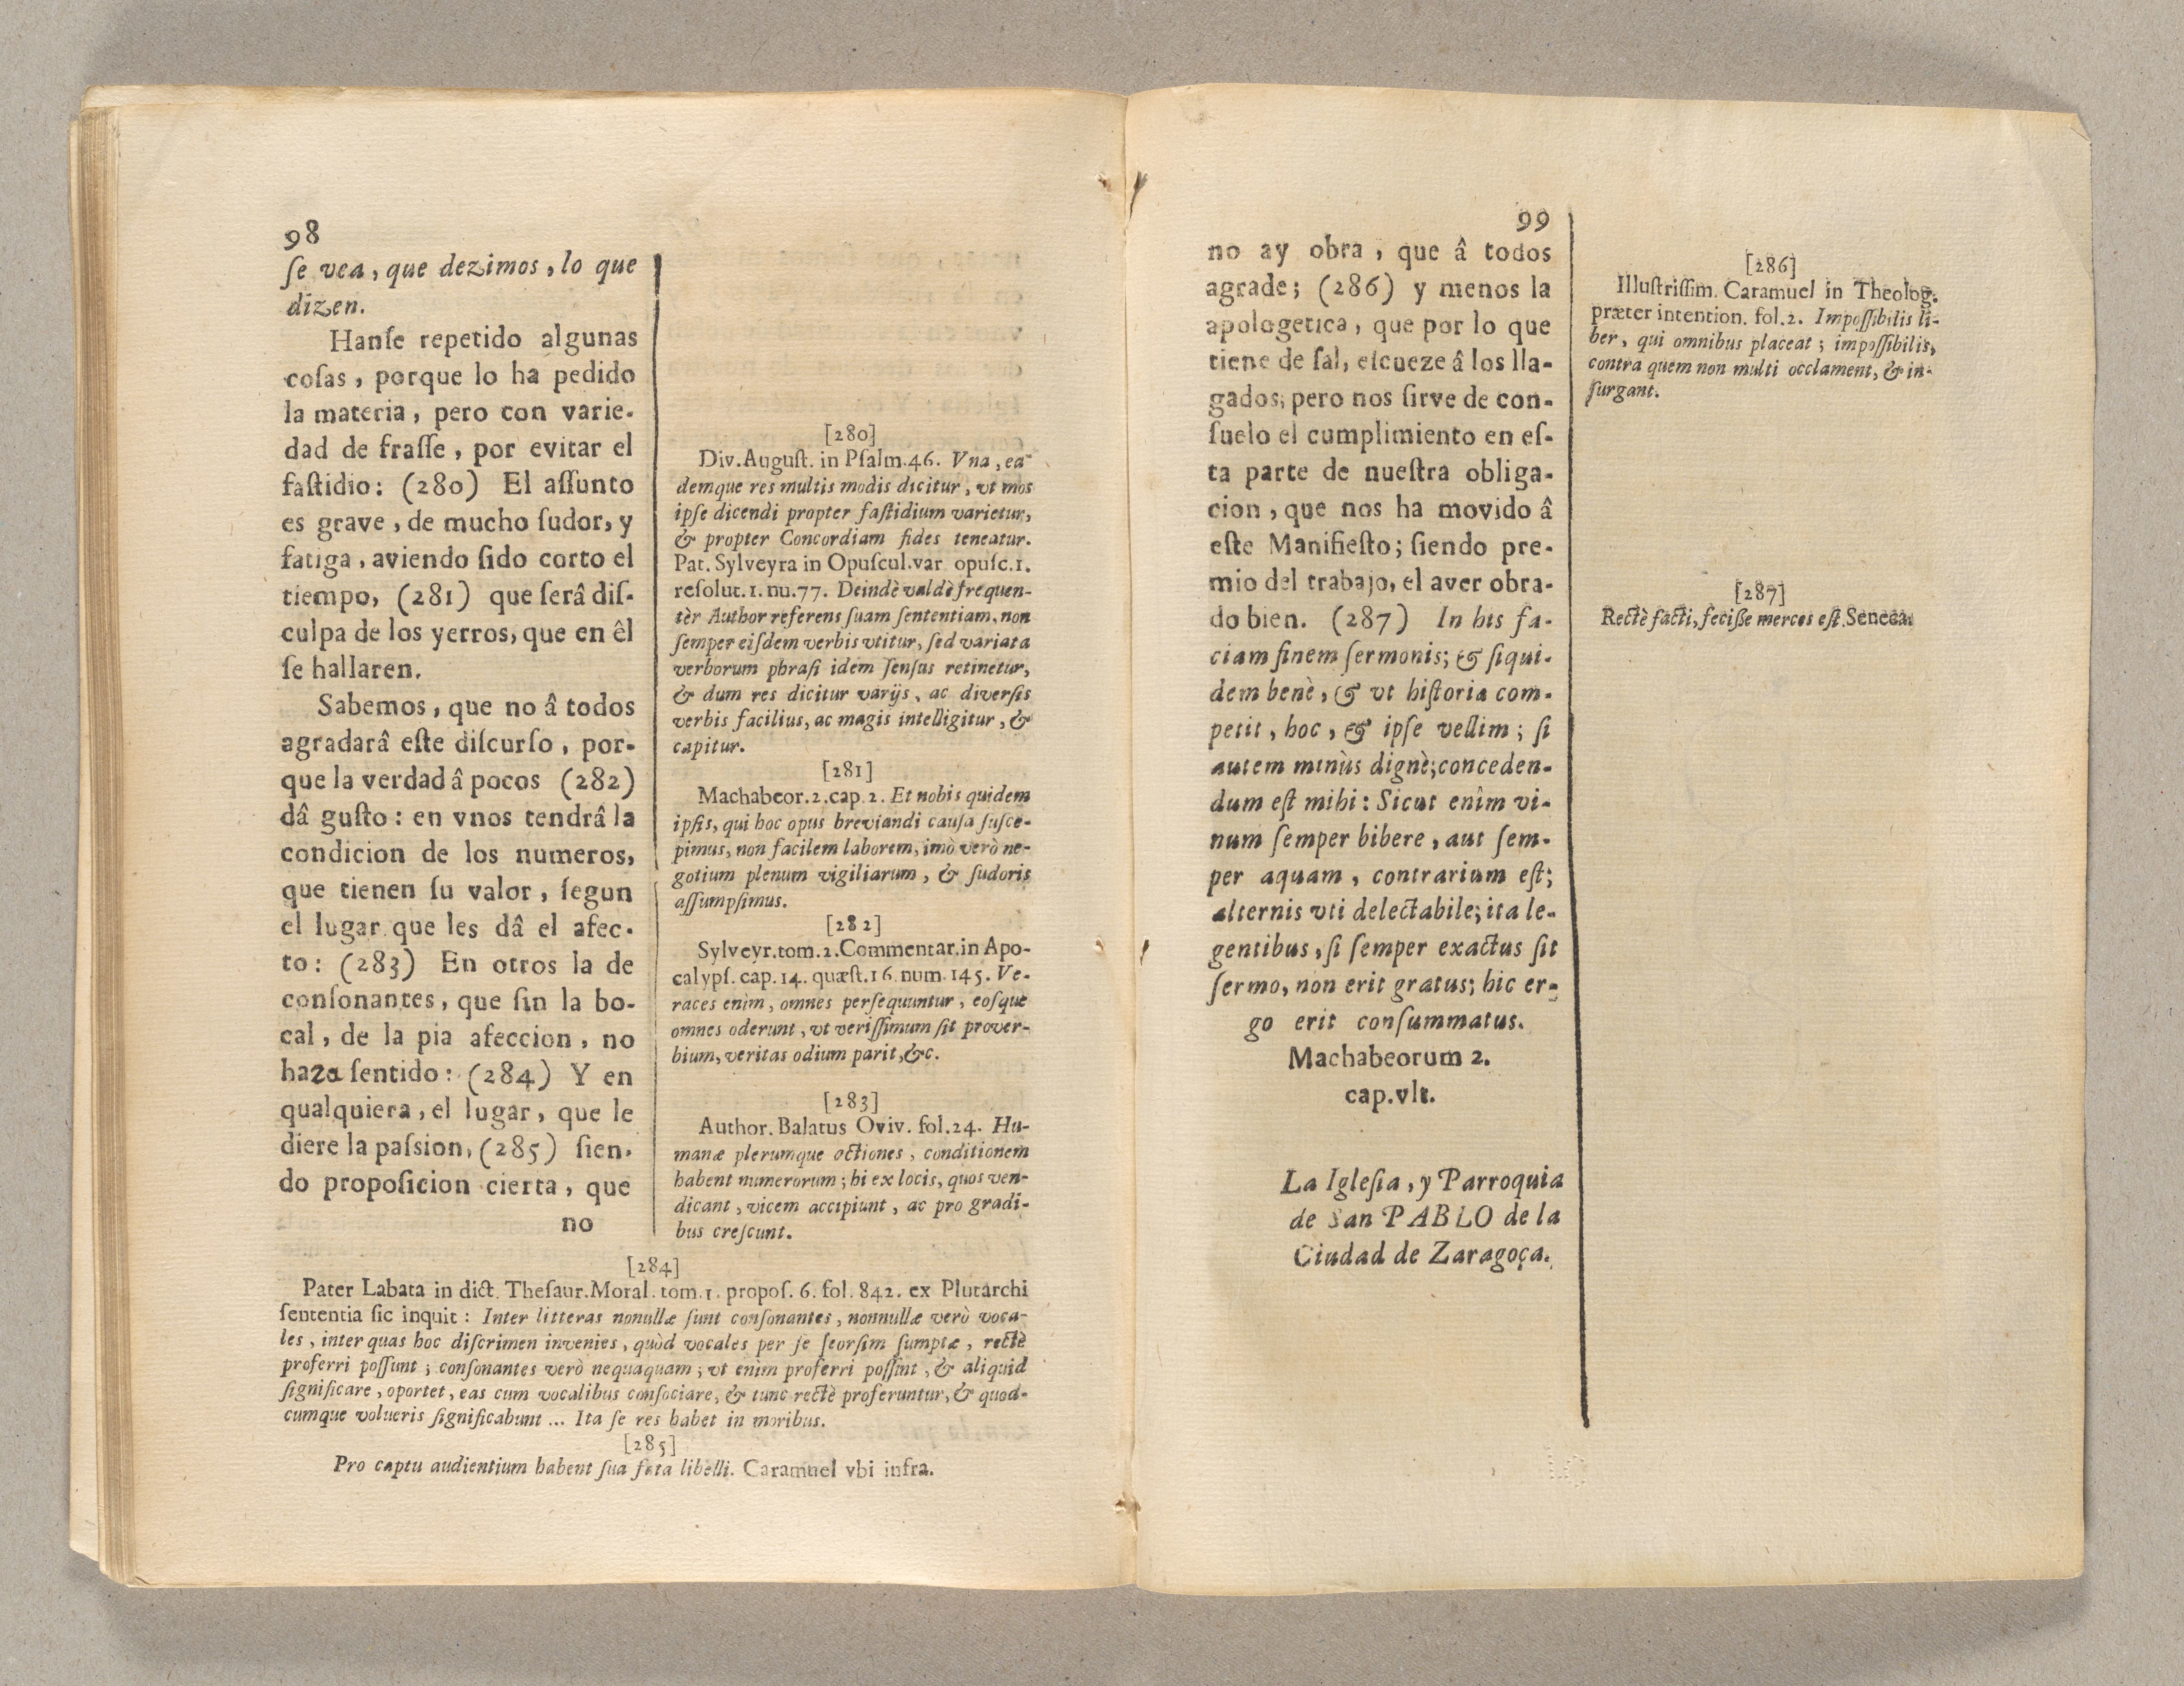 98
ſe vea, que dezimos, lo que
dizen.
Hanſe repetido algunas
coſas, porque lo ha pedido
la materia, pero con varie-
dad de fraſſe, por evitar el
faſtidio: (280) El aſſunto
es grave, de mucho ſudor, y
fatiga, aviendo ſido corto el
tiempo, (281) que ſerâ diſ-
culpa de los yerros, que en êl
ſe hallaren.
Sabemos, que no â todos
agradarâ eſte diſcurſo, por-
que la verdad â pocos (282)
dâ guſto: en vnos tendrâ la
condicion de los numeros,
que tienen ſu valor, ſegun
el lugar que les dâ el afec-
to: (283) En otros la de
conſonantes, que ſin la bo-
cal, de la pia afeccion, no
haza ſentido: (284) Y en
qualquiera, el lugar, que le
diere la paſsion, (285) ſien-
do propoſicion cierta, que
no
[280]
Div. Auguſt. in Pſalm. 46. Vna, ea-
demque res multis modis dicitur, vt mos
ipſe dicendi propter faſtidium varietur,
& propter Concordiam fides teneatur.
Pat. Sylveyra in Opuſcul. var opuſc. 1.
reſolut. 1. nu. 77. Deindè valdè frequen-
tèr Author referens ſuam ſententiam, non
ſemper eiſdem verbis vtitur, ſed variata
verborum phraſi idem ſenſus retinetur,
& dum res dicitur varijs, ac diverſis
verbis facilius, ac magis intelligitur, &
capitur.
[281]
Machabeor. 2. cap. 2. Et nobis quidem
ipſis, qui hoc opus breviandi cauſa ſuſce-
pimus, non facilem laborem, imò verò ne-
gotium plenum vigiliarum, & ſudoris
aſſumpſimus.
[282]
Sylveyr. tom. 2. Commentar. in Apo-
calypſ. cap. 14. quæſt. 16. num. 145. Ve-
races enìm, omnes perſequuntur, eoſque
omnes oderunt, vt veriſſimum ſit prover-
bium, veritas odium parit, &c.
[283]
Author. Balatus Oviv. fol. 24. Hu-
manæ plerumque actiones, conditionem
habent numerorum; hi ex locis, quos ven-
dicant, vicem accipiunt, ac pro gradi-
bus creſcunt.
[284]
Pater Labata in dict. Theſaur. Moral. tom. 1. propoſ. 6. fol. 842. ex Plutarchi
ſententia ſic inquit: Inter litteras nonullæ ſunt conſonantes, nonnullæ verò voca-
les, inter quas hoc diſcrimen invenies, quòd vocales per ſe ſeorſim ſumptæ, rectè
proferri poſſunt; conſonantes verò nequaquam; vt enìm proferri poſſint, & aliquid
ſignificare, oportet, eas cum vocalibus conſociare, & tunc rectè proferuntur, & quod-
cumque volueris ſignificabunt... Ita ſe res habet in moribus.
[285]
Pro captu audientium habent ſua fata libelli. Caramuel vbi infra.
99
no ay obra, que â todos
agrade; (286) y menos la
apologetica, que por lo que
tiene de ſal, eſcueze â los lla-
gados; pero nos ſirve de con-
ſuelo el cumplimiento en eſ-
ta parte de nueſtra obliga-
cion, que nos ha movido â
eſte Manifieſto; ſiendo pre-
mio del trabajo, el aver obra-
do bien. (287) In his fa-
ciam finem ſermonis; & ſiqui-
dem benè, & vt hiſtoria com-
petit, hoc, & ipſe vellim; ſi
autem minùs dignè; conceden-
dum eſt mihi: Sicut enìm vi-
num ſemper bibere, aut ſem-
per aquam, contrarium eſt;
alternis vti delectabile; ita le-
gentibus, ſi ſemper exactus ſit
ſermo, non erit gratus; hic er-
go erit conſummatus.
Machabeorum 2.
cap. vlt.
La Igleſia, y Parroquia
de San PABLO de la
Ciudad de Zaragoça.
[286]
Illuſtriſſim. Caramuel in Theolog.
præter intention. fol. 2. Impoſſibilis li-
ber, qui omnibus placeat; impoſſibilis,
contra quem non multi occlament, & in-
ſurgant.
[287]
Rectè facti, feciſſe merces eſt. Seneca.